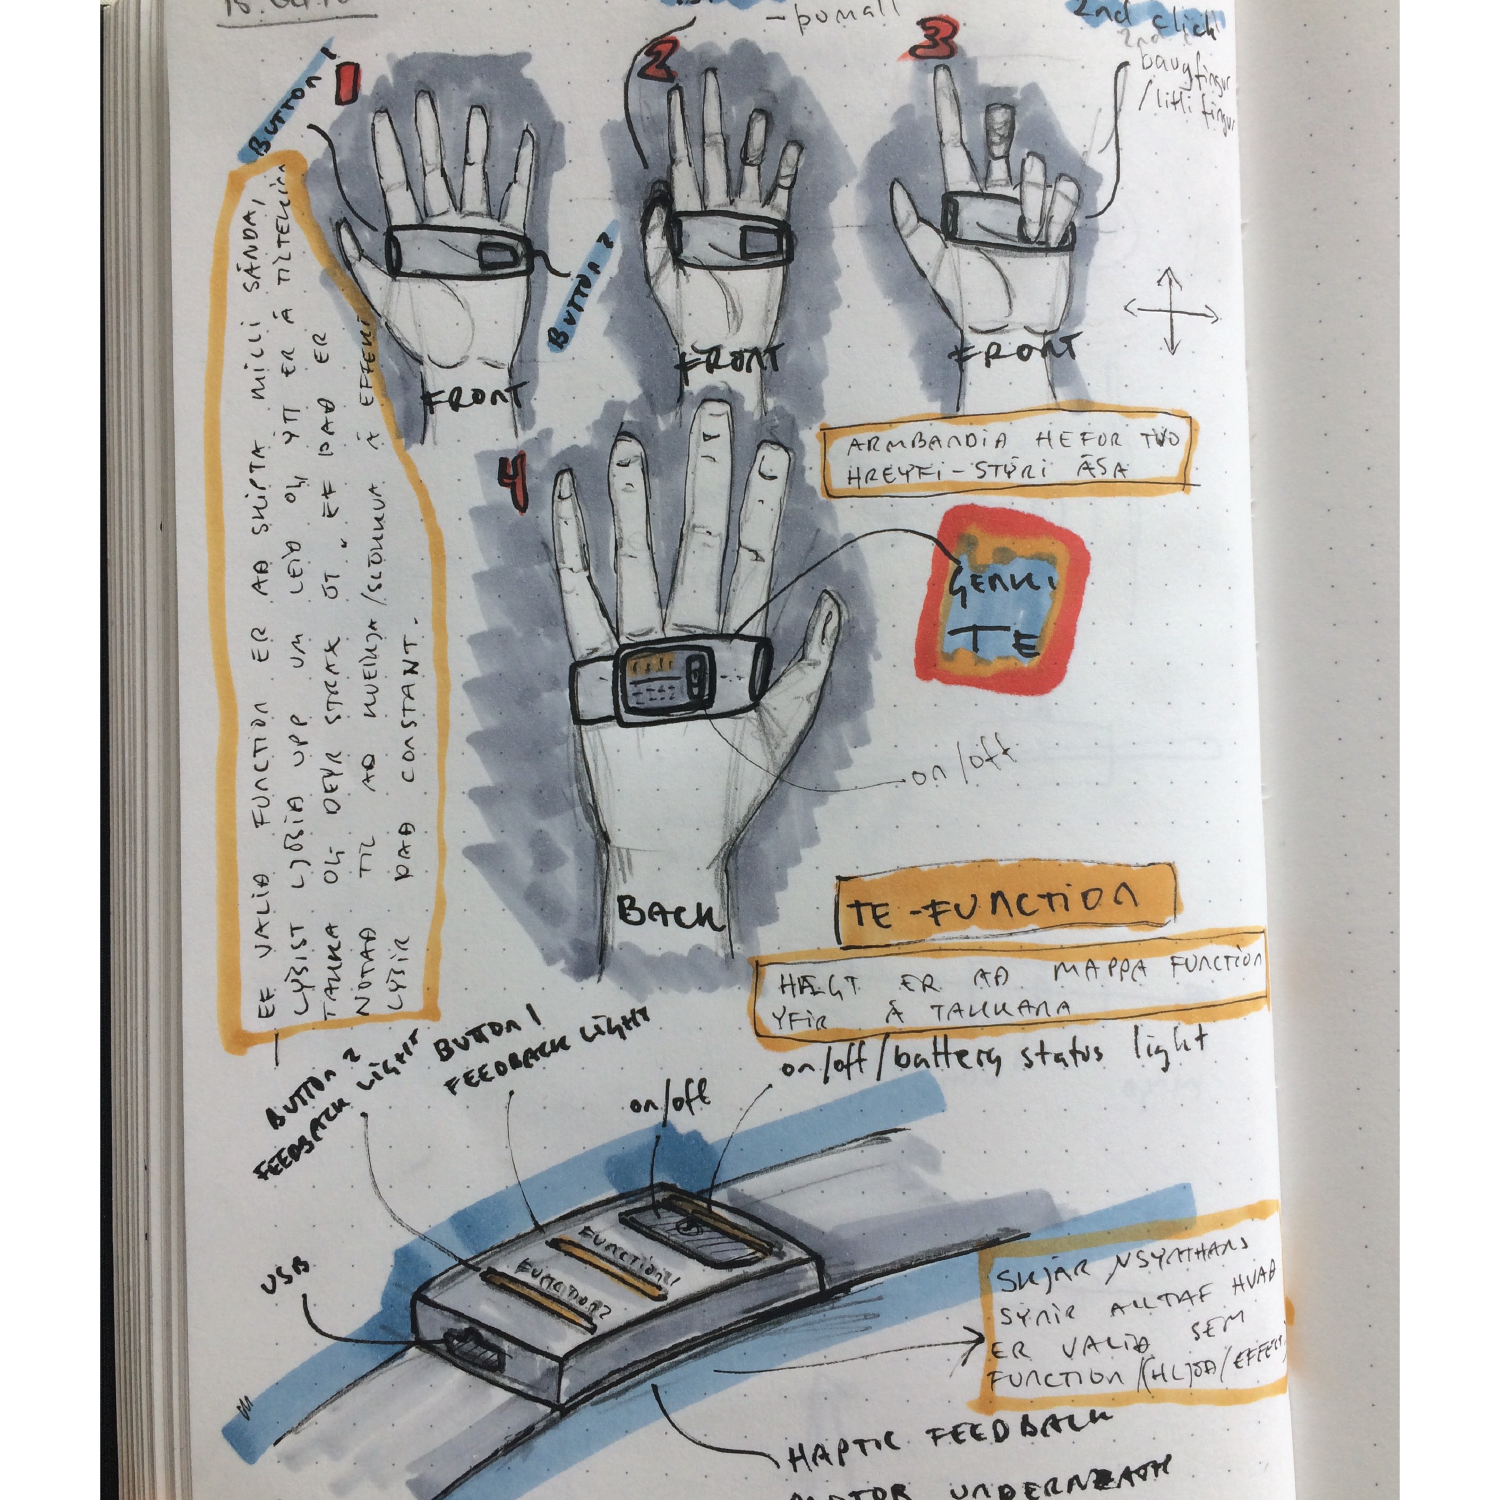 - þumall
2nd click
baugfingur
/litli fingur
BUTTON 1
1
2
3
BUTTON 2
FRONT
FRONT
FRONT
EF VALIÐ FUNCTION ER AÐ SKIPTA MILLI SÁNDA,
LÝSIST LJÓSIÐ UPP UM LEIÐ OG ÝTT ER Á TILTEKINN
TAKKA OG DEYR STRAX ÚT. EF ÞAÐ ER
NOTAÐ TIL AÐ KVEIKJA/SLÖKKVA Á EFFEKT
LÝSIR ÞAÐ CONSTANT.
ARMBANDIÐ HEFUR TVO
HREYFI-STÝRI ÁSA
4
GENKI
TE
on/off
BACK
TE-FUNCTION
HÆGT ER AÐ MAPPA FUNCTION
YFIR Á TAKKANA
BUTTON 2
FEEDBACK LIGHT
BUTTON 1
FEEDBACK LIGHT
on/off
on/off/battery status light
USB
FUNCTION 1
FUNCTION 2
SKJÁR
SÝNIR ALLTAF HVAÐ
ER VALIÐ SEM
FUNCTION/(HLJÓÐ/EFFEKT)
HAPTIC FEEDBACK
MOTOR UNDERNEATH